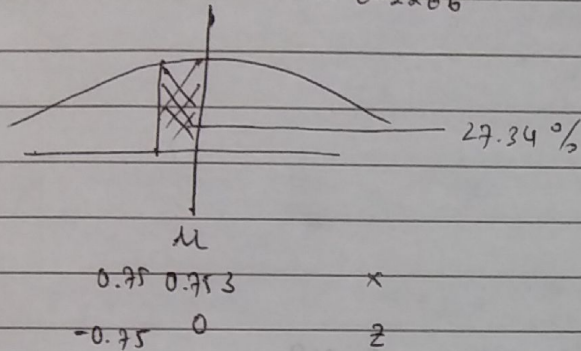 27.34 %
μ
0.75 0.753 x
-0.75 0 z